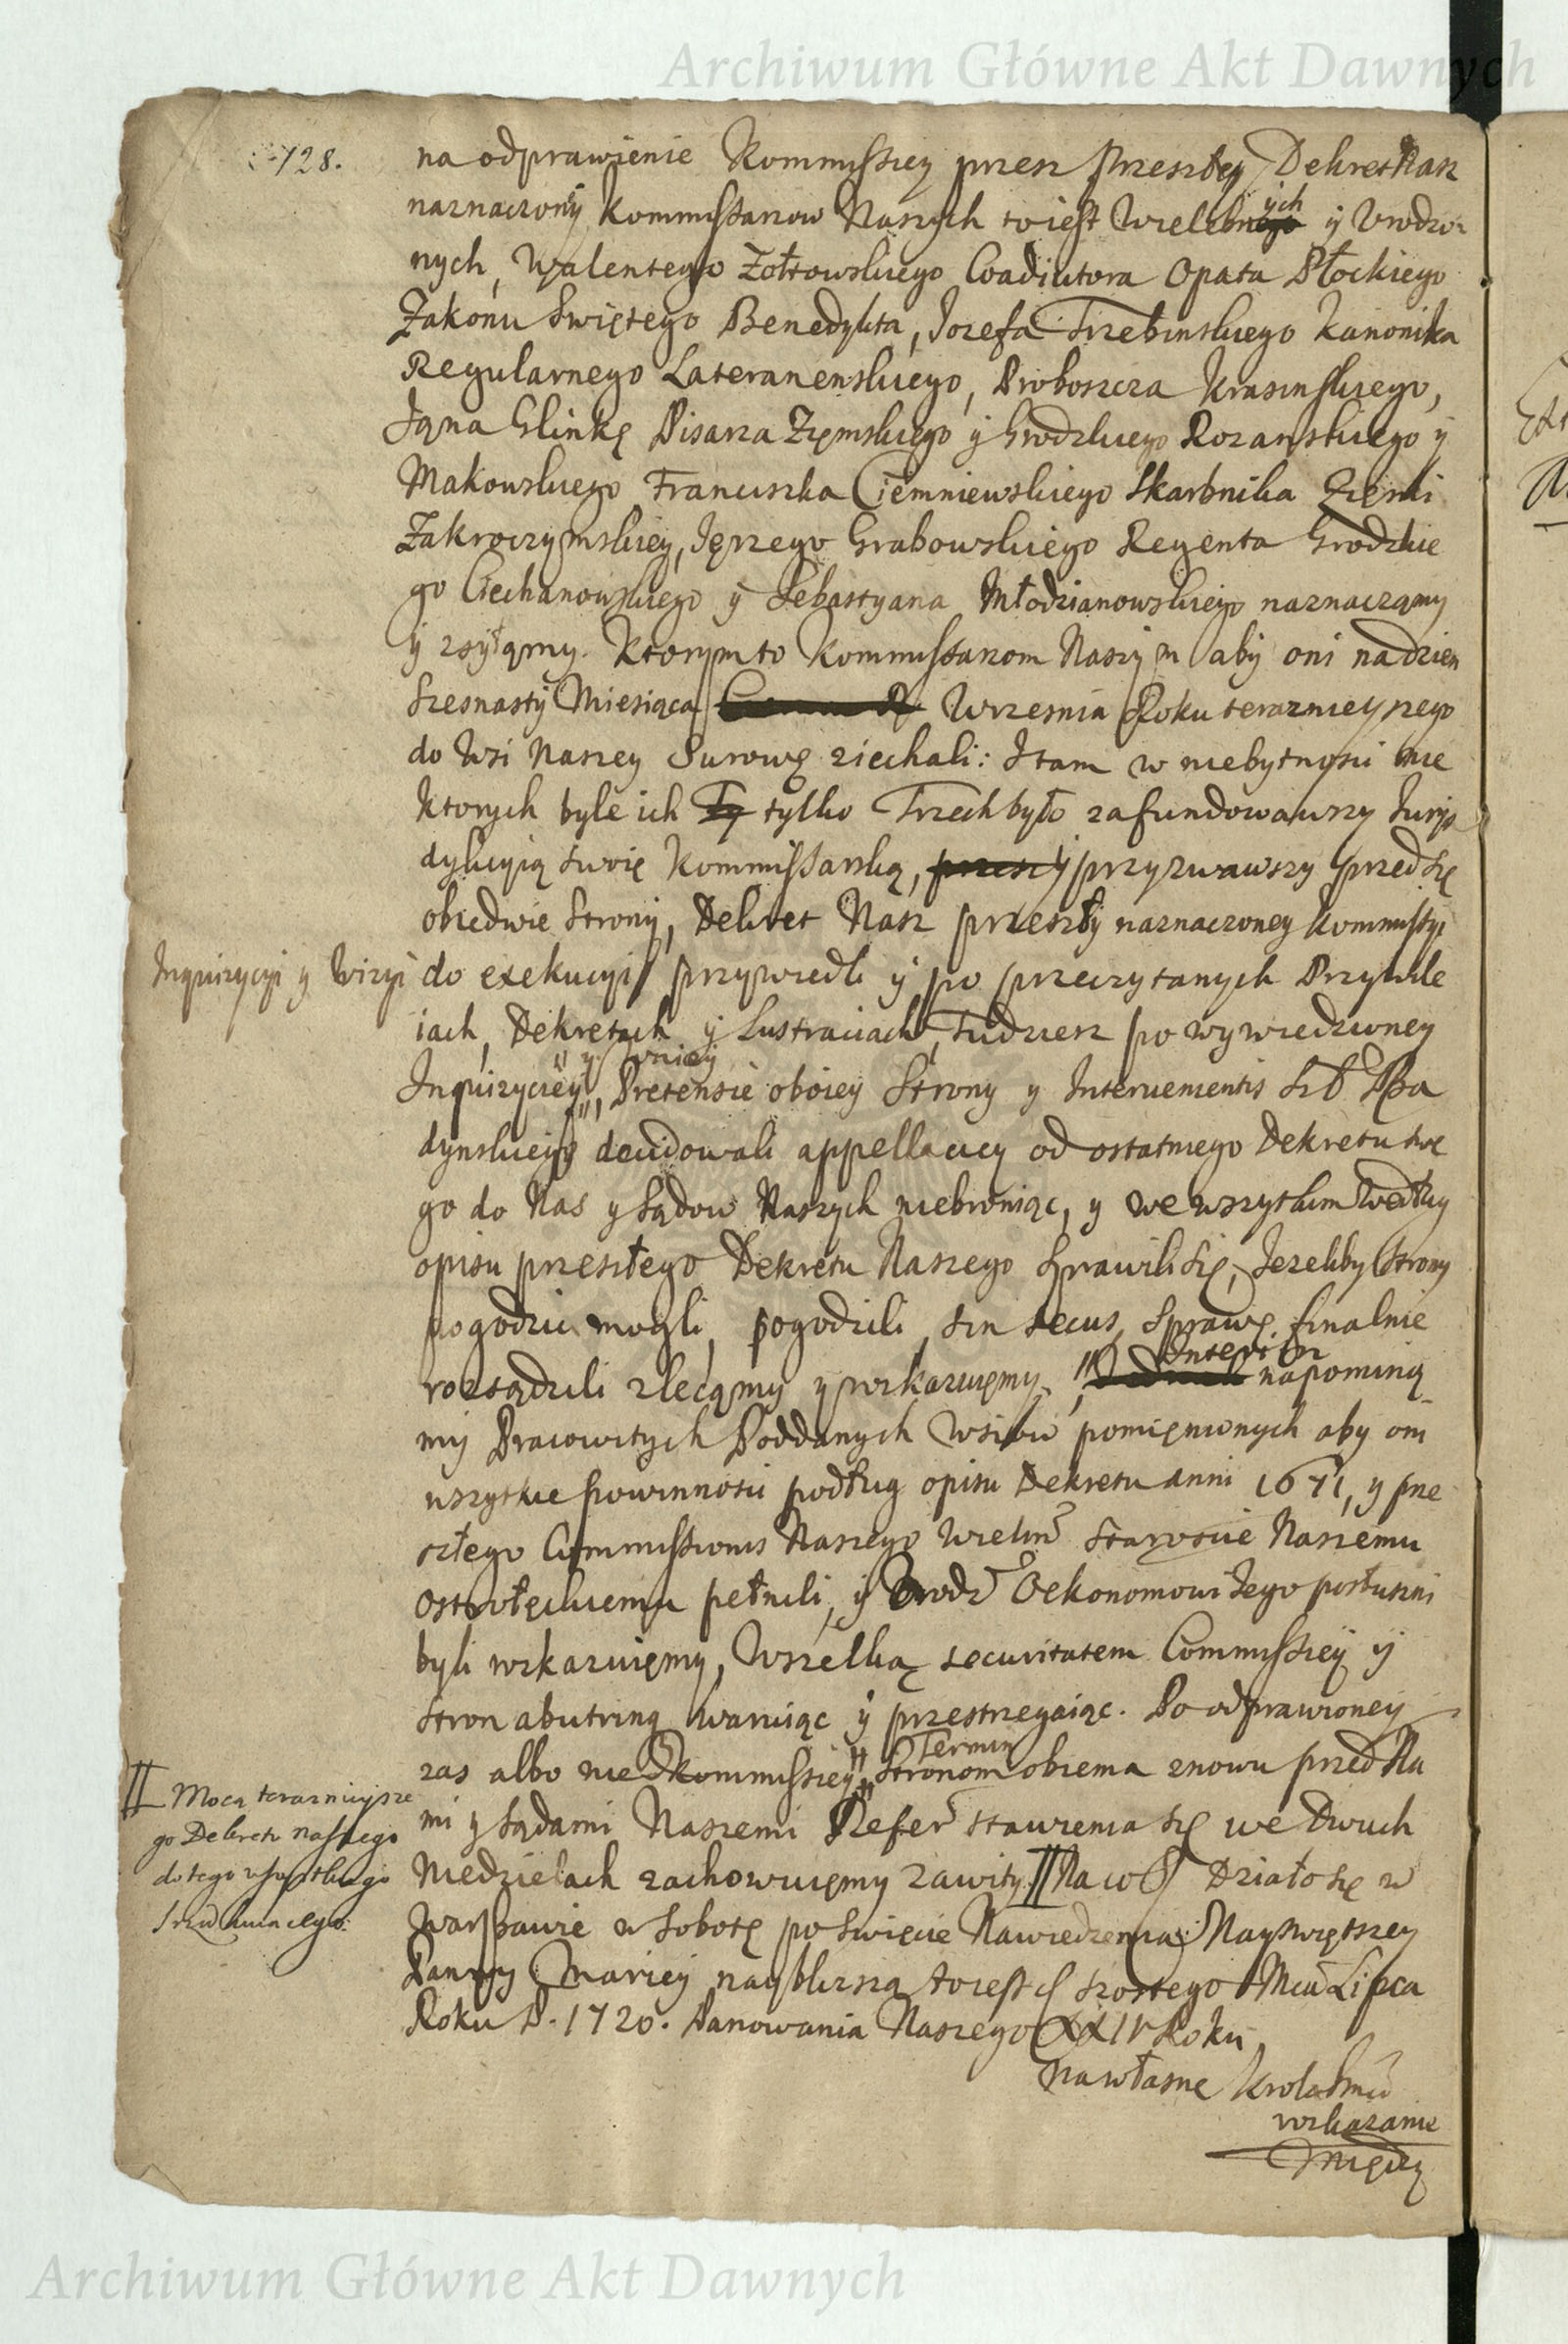 Archiwum Główne Akt Dawnych
128.
na odprawienie Kommissiey przez przeszły Dekret Nasz
naznaczony Kommissarzow Naszych to iest Wielebnych y Urodzo
nych, Walentego Zołtowskiego Coadiutora Opata Płockiego
Zakonu Swiętego Benedykta, Jozefa Trzebinskiego Kanonika
Regularnego Lateranenskiego, Proboszcza Krasinskiego,
Jąna Glinkę Pisarza Zięmskiego y Grodzkiego Rozanskiego y
Makowskiego Franciszka Ciemniewskiego Skarbnika Ziemi
Zakroczymskiey, Jęrzego Grabowskiego Regenta Grodzkie
go Ciechanowskiego y Sebastyana Młodzianowskiego naznaczamy
y zsyłąmy. Ktorym to Kommissarzom Naszym aby oni na dzien
Szesnasty Miesiąca Wrzesnia Roku teraznieyszego
do Wsi Naszey Surowę ziechali: I tam w niebytnosci nie
ktorych byle ich tylko Trzech było zafundowawszy Juris
dykcyią swoię Kommissarską, y przyzwawszy przed się
obiedwie Strony, Dekret Nasz przeszły naznaczoney Kommissyi
Inquizycyi y Wizyi do exekucyi przywiedli y po przeczytanych Przywile
iach, Dekretach y Lustraciach, Tudziesz po wywiedzioney
Inquizyciey, Pretensie oboiey Strony y Intervenientis
dynskiego decidowali appellaciey od ostatniego Dekretu swe
go do Nas y Sądow Naszych niebroniąc, y we wszytkim według
opisu przeszłego Dekretu Naszego sprawili się, Jezeliby Strony
pogodzic mogli, pogodzili, sin secus, sprawę finalnie
Interim
rozsądzili zlecąmy y wskazuięmy. napominą
my Pracowitych Poddanych Wsiow pomięnionych aby oni
wszystkie powinnosci podług opisu Dekretu anni 1671, y prze
szłego Commissionis Naszego Wielm Staroscie Naszemu
Ostrołęckiemu pełnili, y Urodz Oekonomowi Jego posłuszni
byli wskazuięmy, Wszelką securitatem Commissiey y
Stron abutrinq waruiąc y przestrzegaiąc. Po odprawioney
Termin
zas albo nie Kommissiey Stronom obiema znowu przed Na
mi y Sądami Naszemi Refer stawienia się we Dwuch
Niedzielach zachowuięmy zawity. Działo się w
Warszawie w Sobotę po Swięcie Nawiedzenia Nayswiętszey
Panny Mariey naybliszą to iest szostego Mca Lipca
Roku P. 1720. Panowania Naszego XXIV Roku
Na własne Krola Jmci
wskazanie
Mocą teraznieysze
go Dekretu naszego
do tego wszystkiego
Archiwum Główne Akt Dawnych